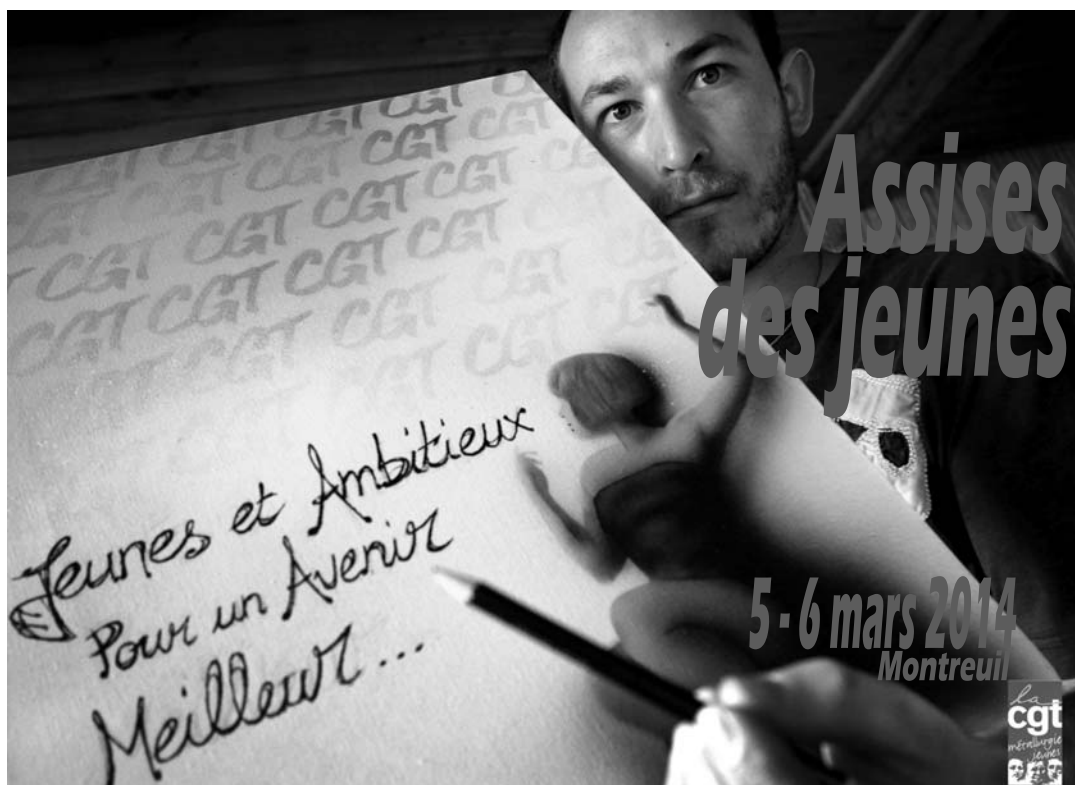 CGT CGT CGT
CGT CGT CGT CGT
CGT CGT CGT CGT
CGT CGT CGT CGT
CGT CGT CGT CGT
CGT CGT
Assises
des jeunes
Jeunes et Ambitieux
Pour un Avenir
Meilleur...
5 - 6 mars 2014
Montreuil
la
cgt
métallurgie
jeunes